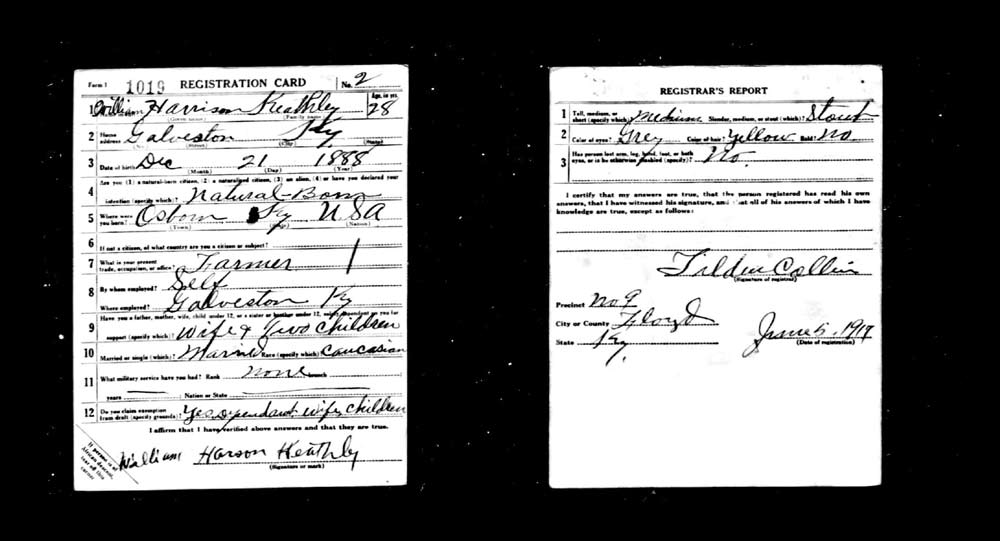 Form 1 1019 REGISTRATION CARD No. 2
1 William Harrison Keathley Age, in yrs. 28
(Given name) (Family name)
2 Home address Galveston Ky
(No.) (Street) (City) (State)
3 Date of birth Dec 21 1888
(Month) (Day) (Year)
Are you (1) a natural-born citizen, (2) a naturalized citizen, (3) an alien, (4) or have you declared your
4 intention (specify which)? Natural-Born
5 Where were you born? Osborn Ky USA
(Town) (State) (Nation)
6 If not a citizen, of what country are you a citizen or subject?
7 What is your present trade, occupation, or office? Farmer
8 By whom employed? Self
Where employed? Galveston Ky
Have you a father, mother, wife, child under 12, or a sister or brother under 12, solely dependent on you for
9 support (specify which)? Wife & Two Children
10 Married or single (which)? Married Race (specify which)? Caucasian
11 What military service have you had? Rank None branch
years Nation or State
12 Do you claim exemption from draft (specify grounds)? Yes dependant wife children
I affirm that I have verified above answers and that they are true.
William Harson Keathley
(Signature or mark)
If person is of African descent, tear off this corner
REGISTRAR'S REPORT
1 Tall, medium, or short (specify which)? Medium Slender, medium, or stout (which)? Stout
2 Color of eyes? Grey Color of hair? Yellow Bald? No
3 Has person lost arm, leg, hand, foot, or both eyes, or is he otherwise disabled (specify)? No
I certify that my answers are true, that the person registered has read his own
answers, that I have witnessed his signature, and that all of his answers of which I have
knowledge are true, except as follows:
Tilden Collins
(Signature of registrar)
Precinct No 9
City or County Floyd
State Ky. June 5, 1917
(Date of registration)